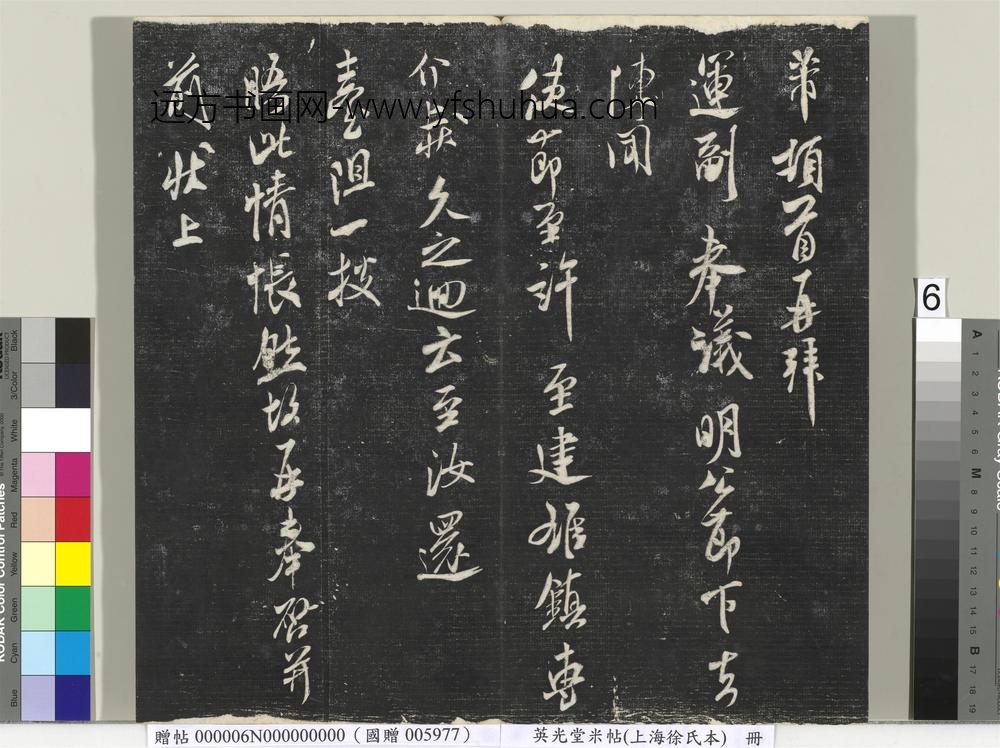 芾頓首再拜
運副奉議明公節下
聞
使節至許至建雄鎮專
介
久之迴云至汝還
阻一授
晤此情悵然故再奉啓并
前狀上
远方书画网-www.yfshuhua.com
6
贈帖 000006N000000000 (國贈 005977)
英光堂米帖(上海徐氏本) 冊
KODAK Color Control Patches
Blue
Cyan
Green
Yellow
Red
Magenta
White
3/Color
Black
A 1 2 3 4 5 6 M 8 9 10 11 12 13 14 15 B 17 18 19